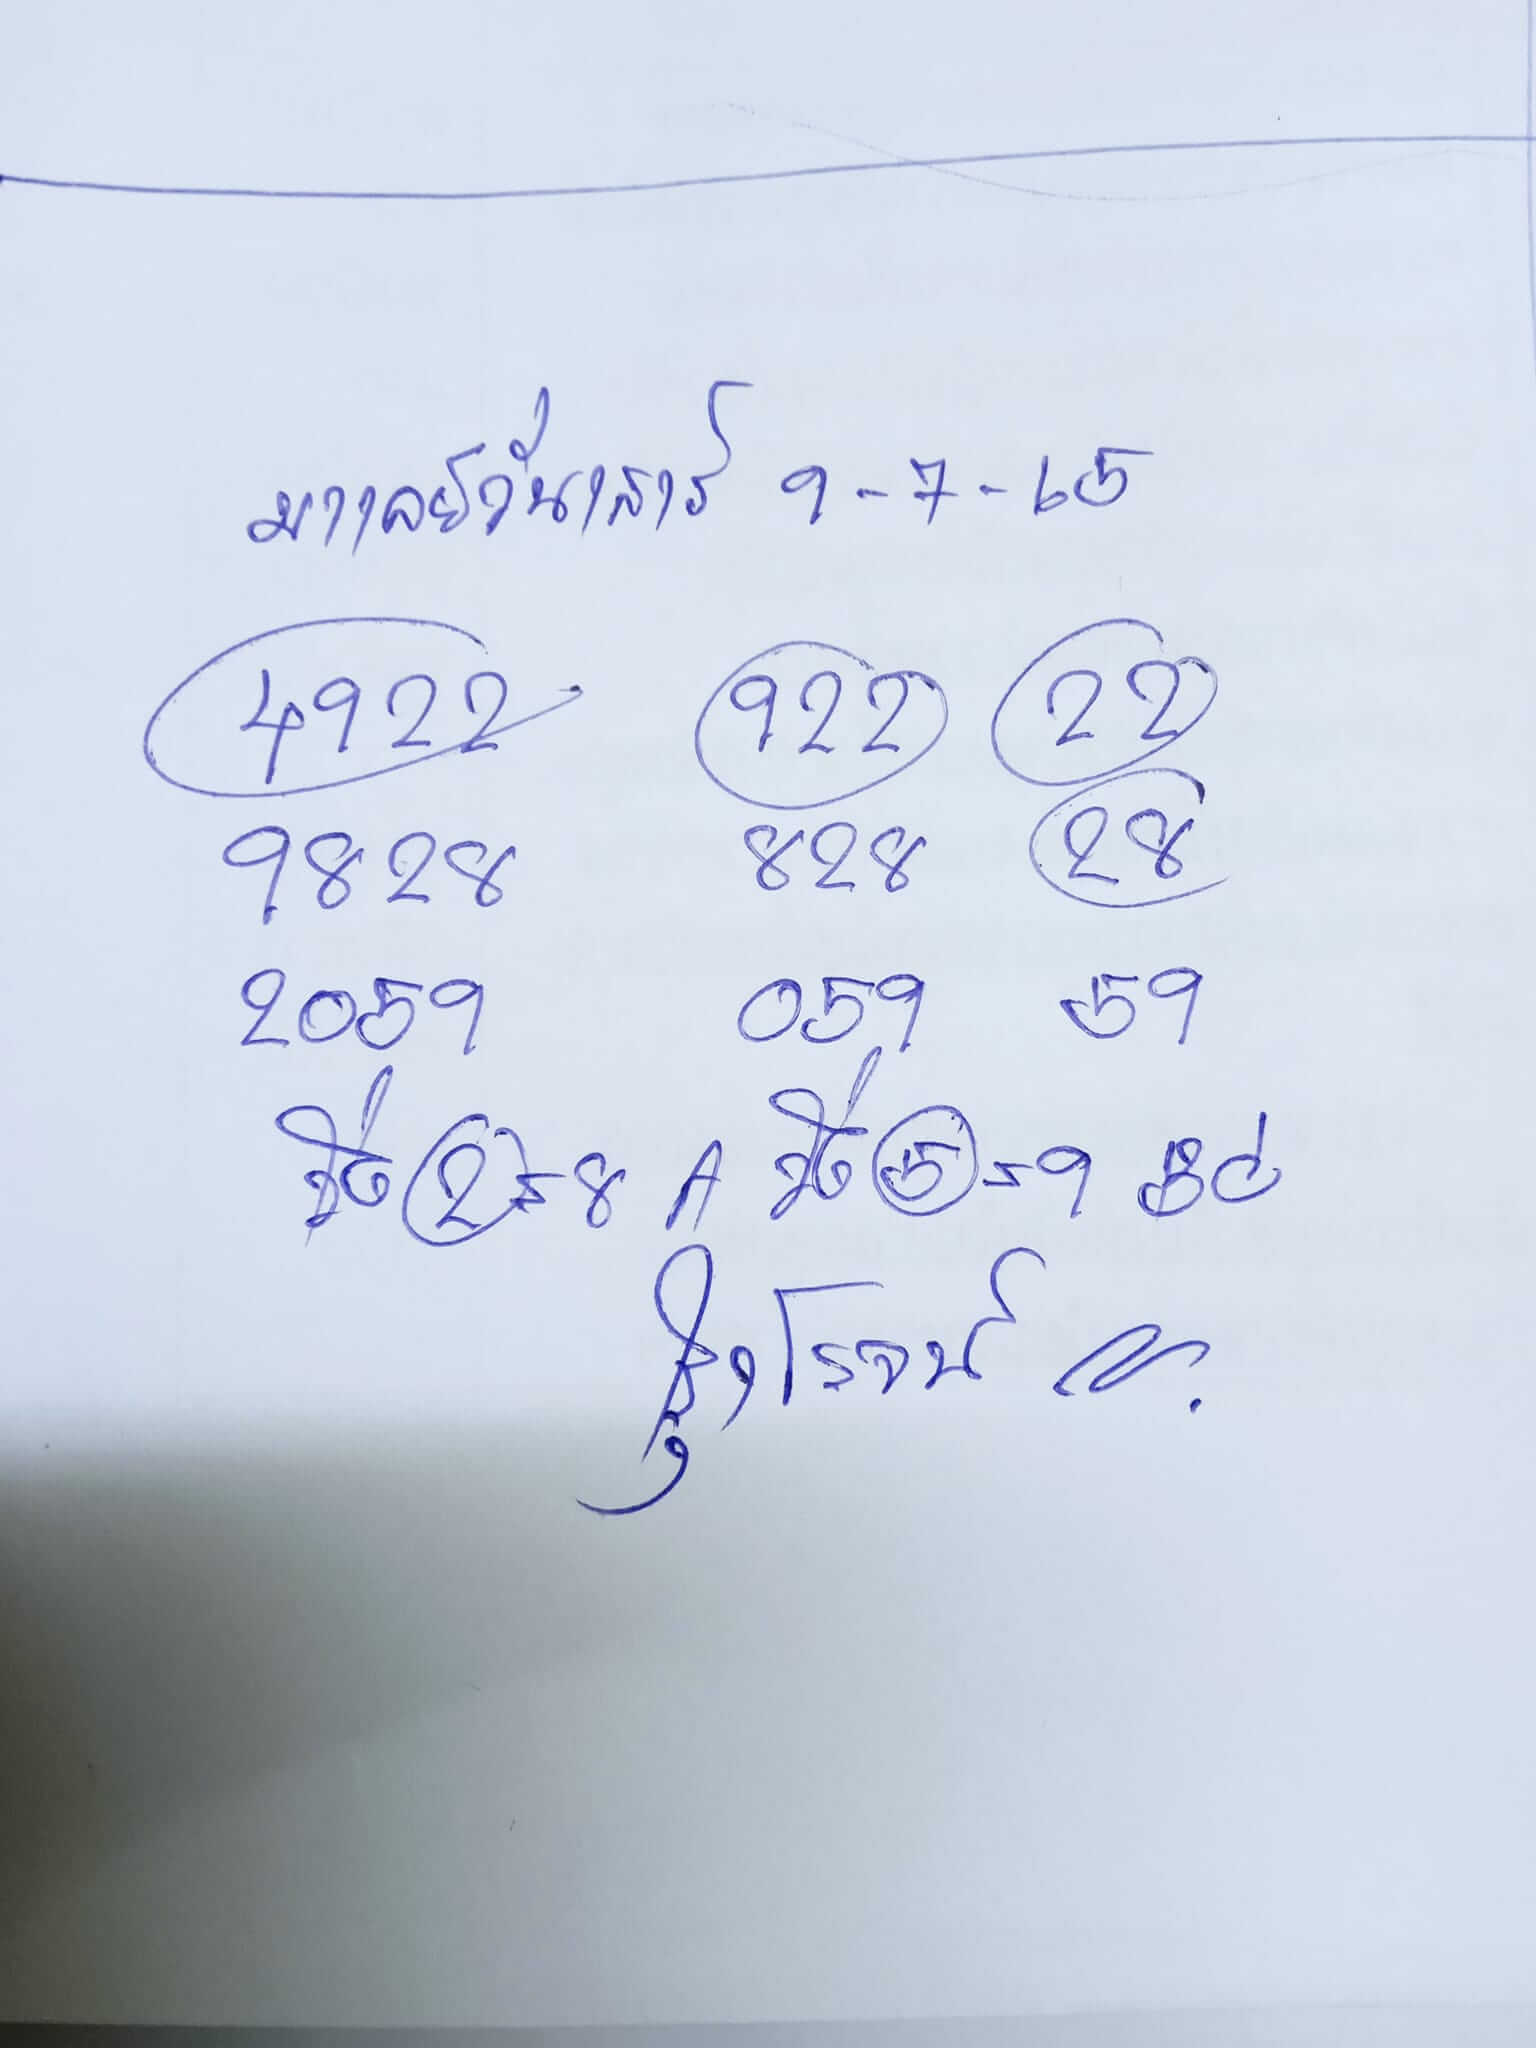 มาเลย์วันเสาร์ 9-7-65
4922 922 22
9828 828 28
2059 059 59
วิ่ง 2=8 A วิ่ง 5=9
โรจน์